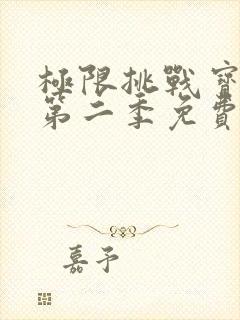 極限挑戰寶
第二季免費
嘉予